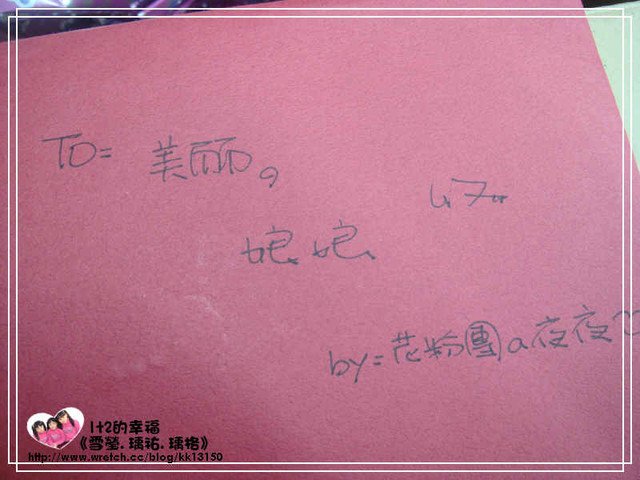 TO= 美丽。
娘娘、
by=花粉團a夜夜♡
1+2的幸福
《雪瑩.瑀祐.瑀格》
http://www.wretch.cc/blog/kk13150